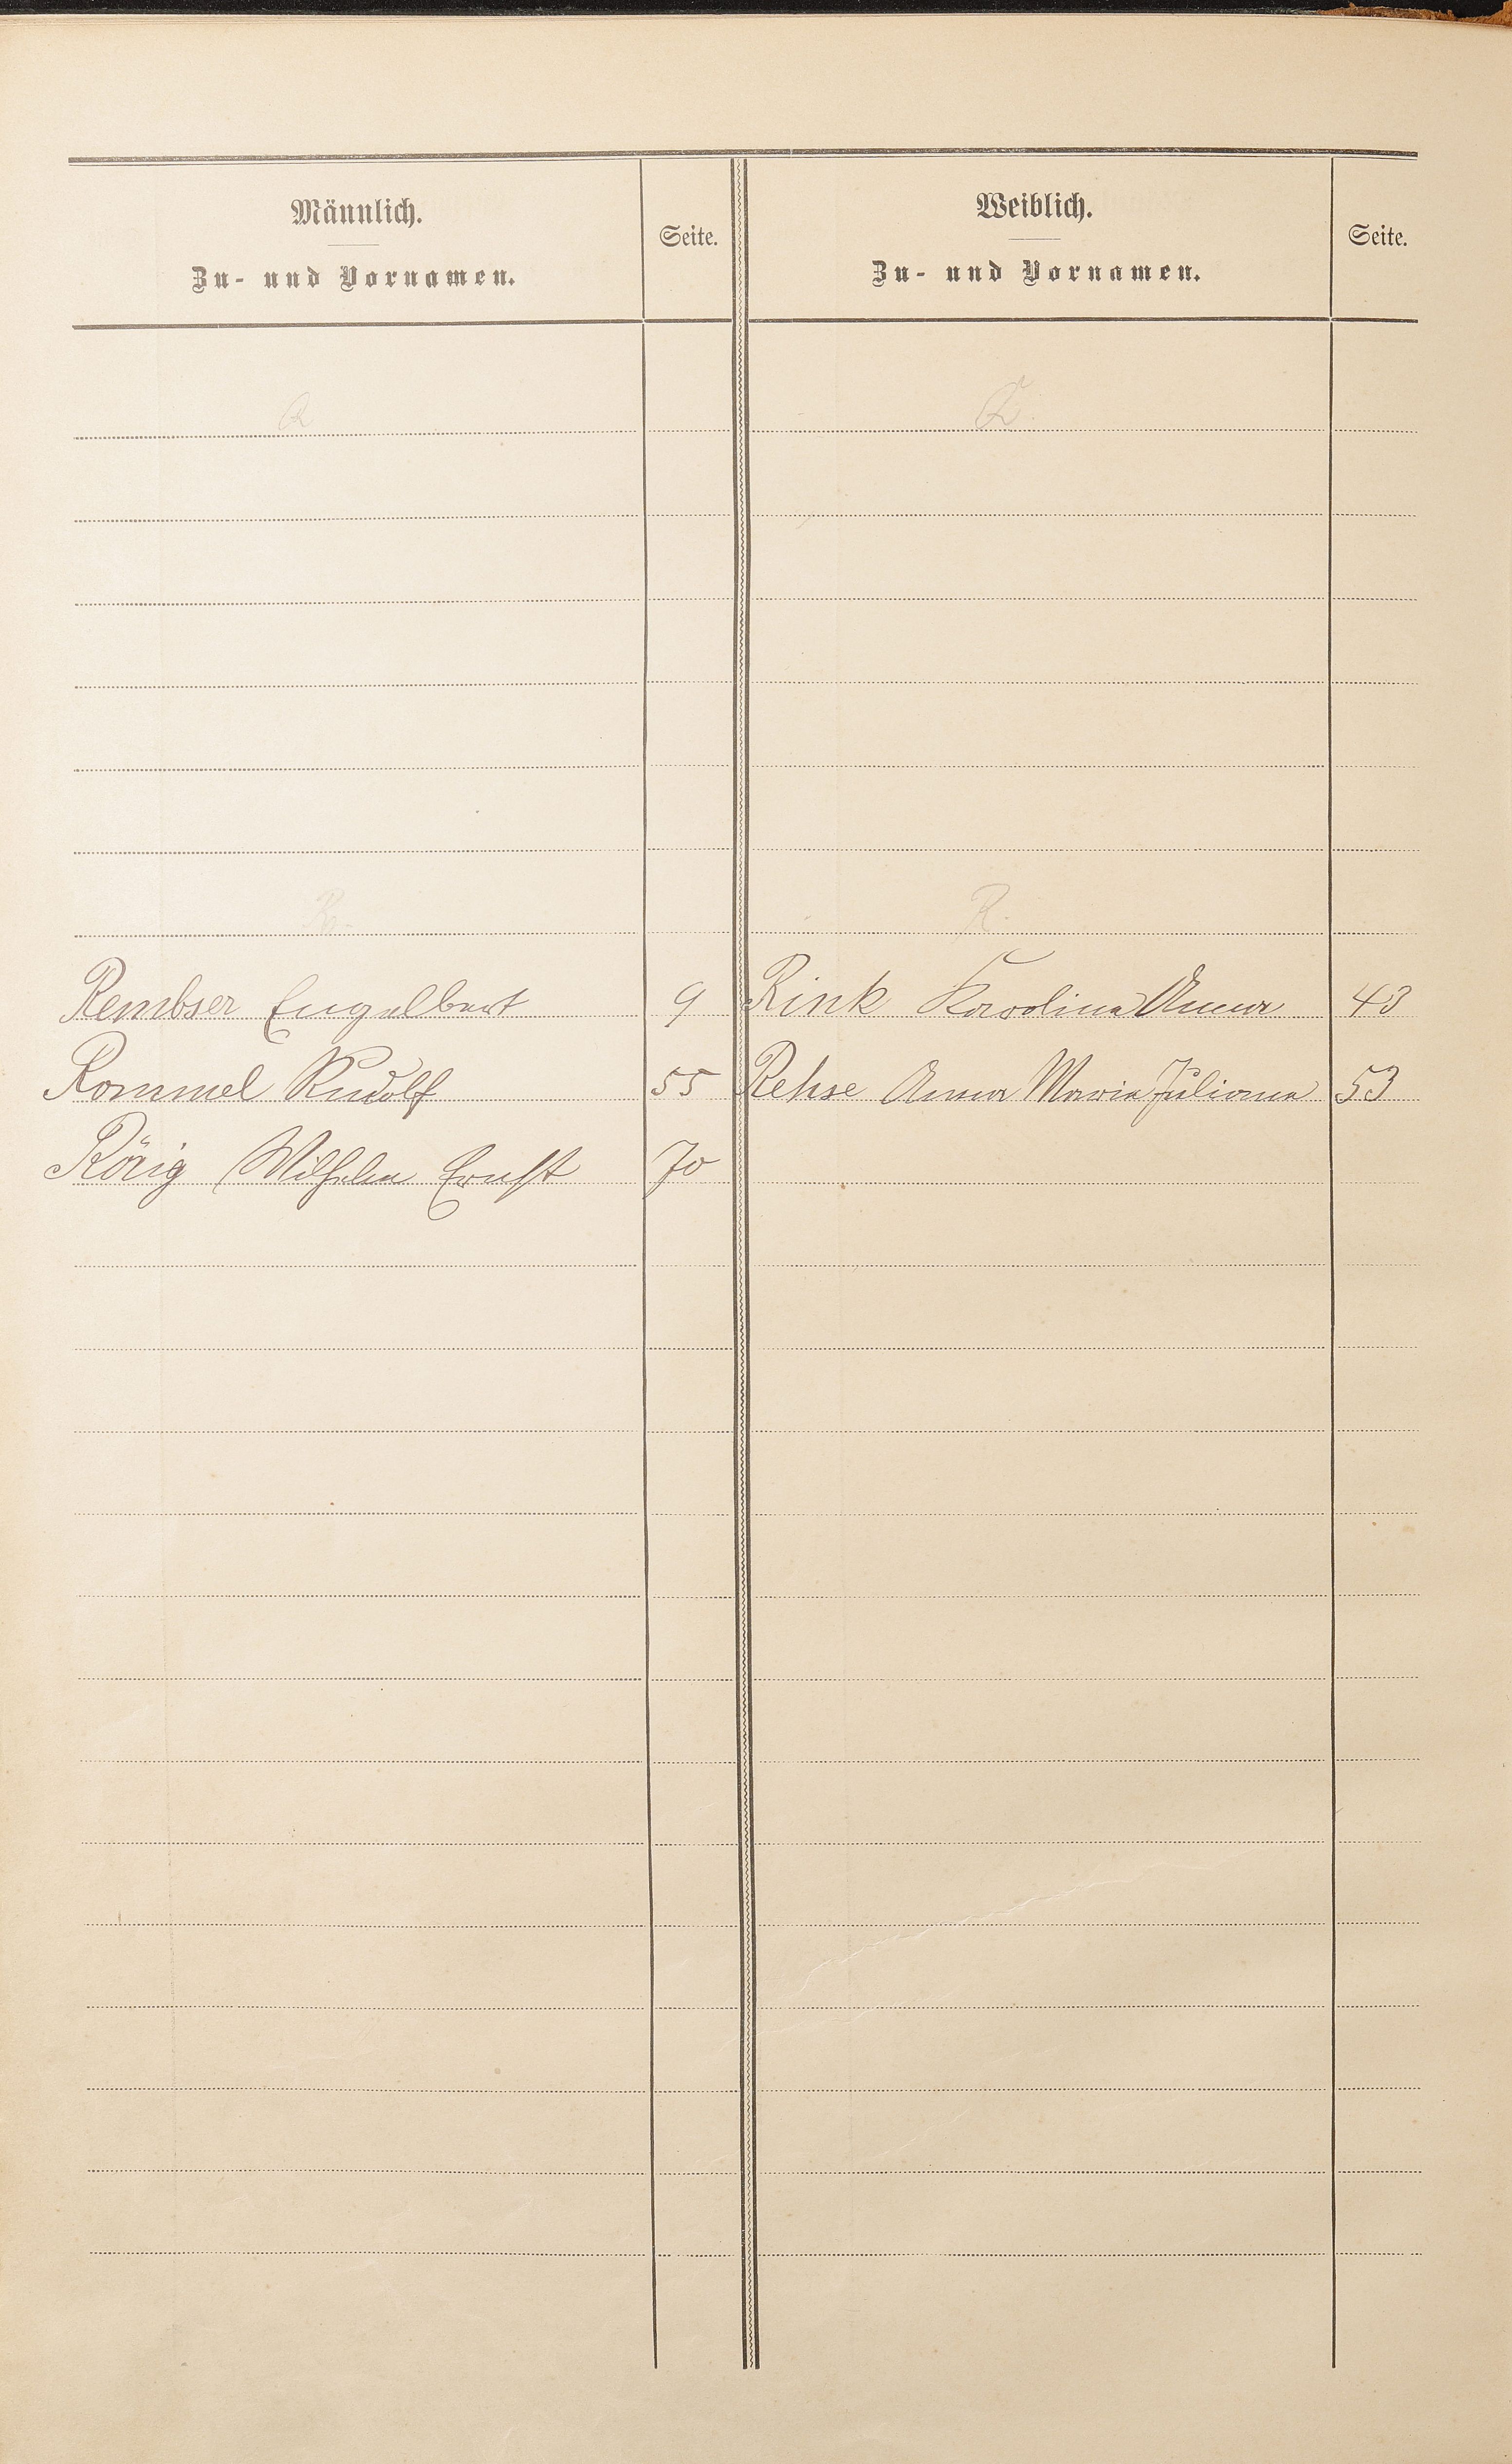 Männlich.
Zu- und Vornamen.
Seite.
Weiblich.
Zu- und Vornamen.
Seite.
Q
Q.
R.
R.
Rembser Engelbert 9 Rink Karolina Anna 43
Rommel Rudolf 55 Rehse Anna Maria Juliana 53
Rörig Wilhelm Ernst 70